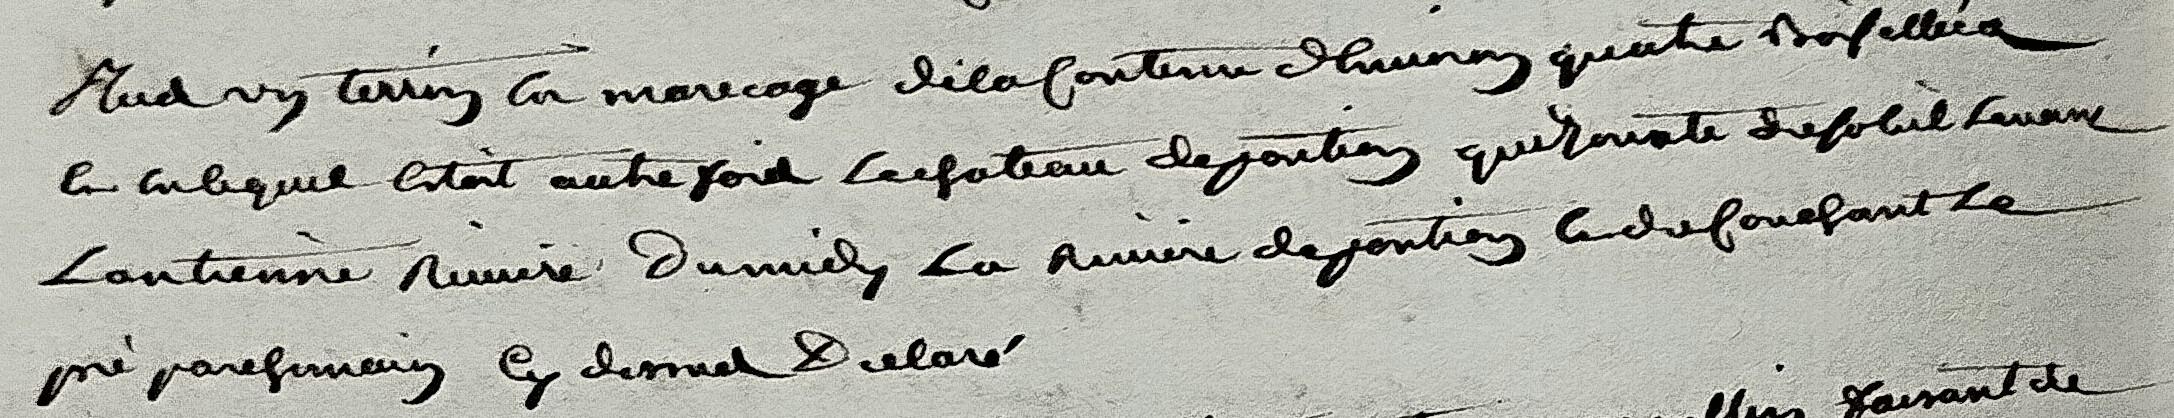 Plus un terrin en marecage dela contenue d'environ quatre Boisellées
en en lequel estoit autre fois Le chateau de pontien qui Jouxte de soleil Levant
Lantienne Riviere Du midy La Riviere de pontien et du Couchant Le
pré parchemain Cy dessus Declaré
faisant de